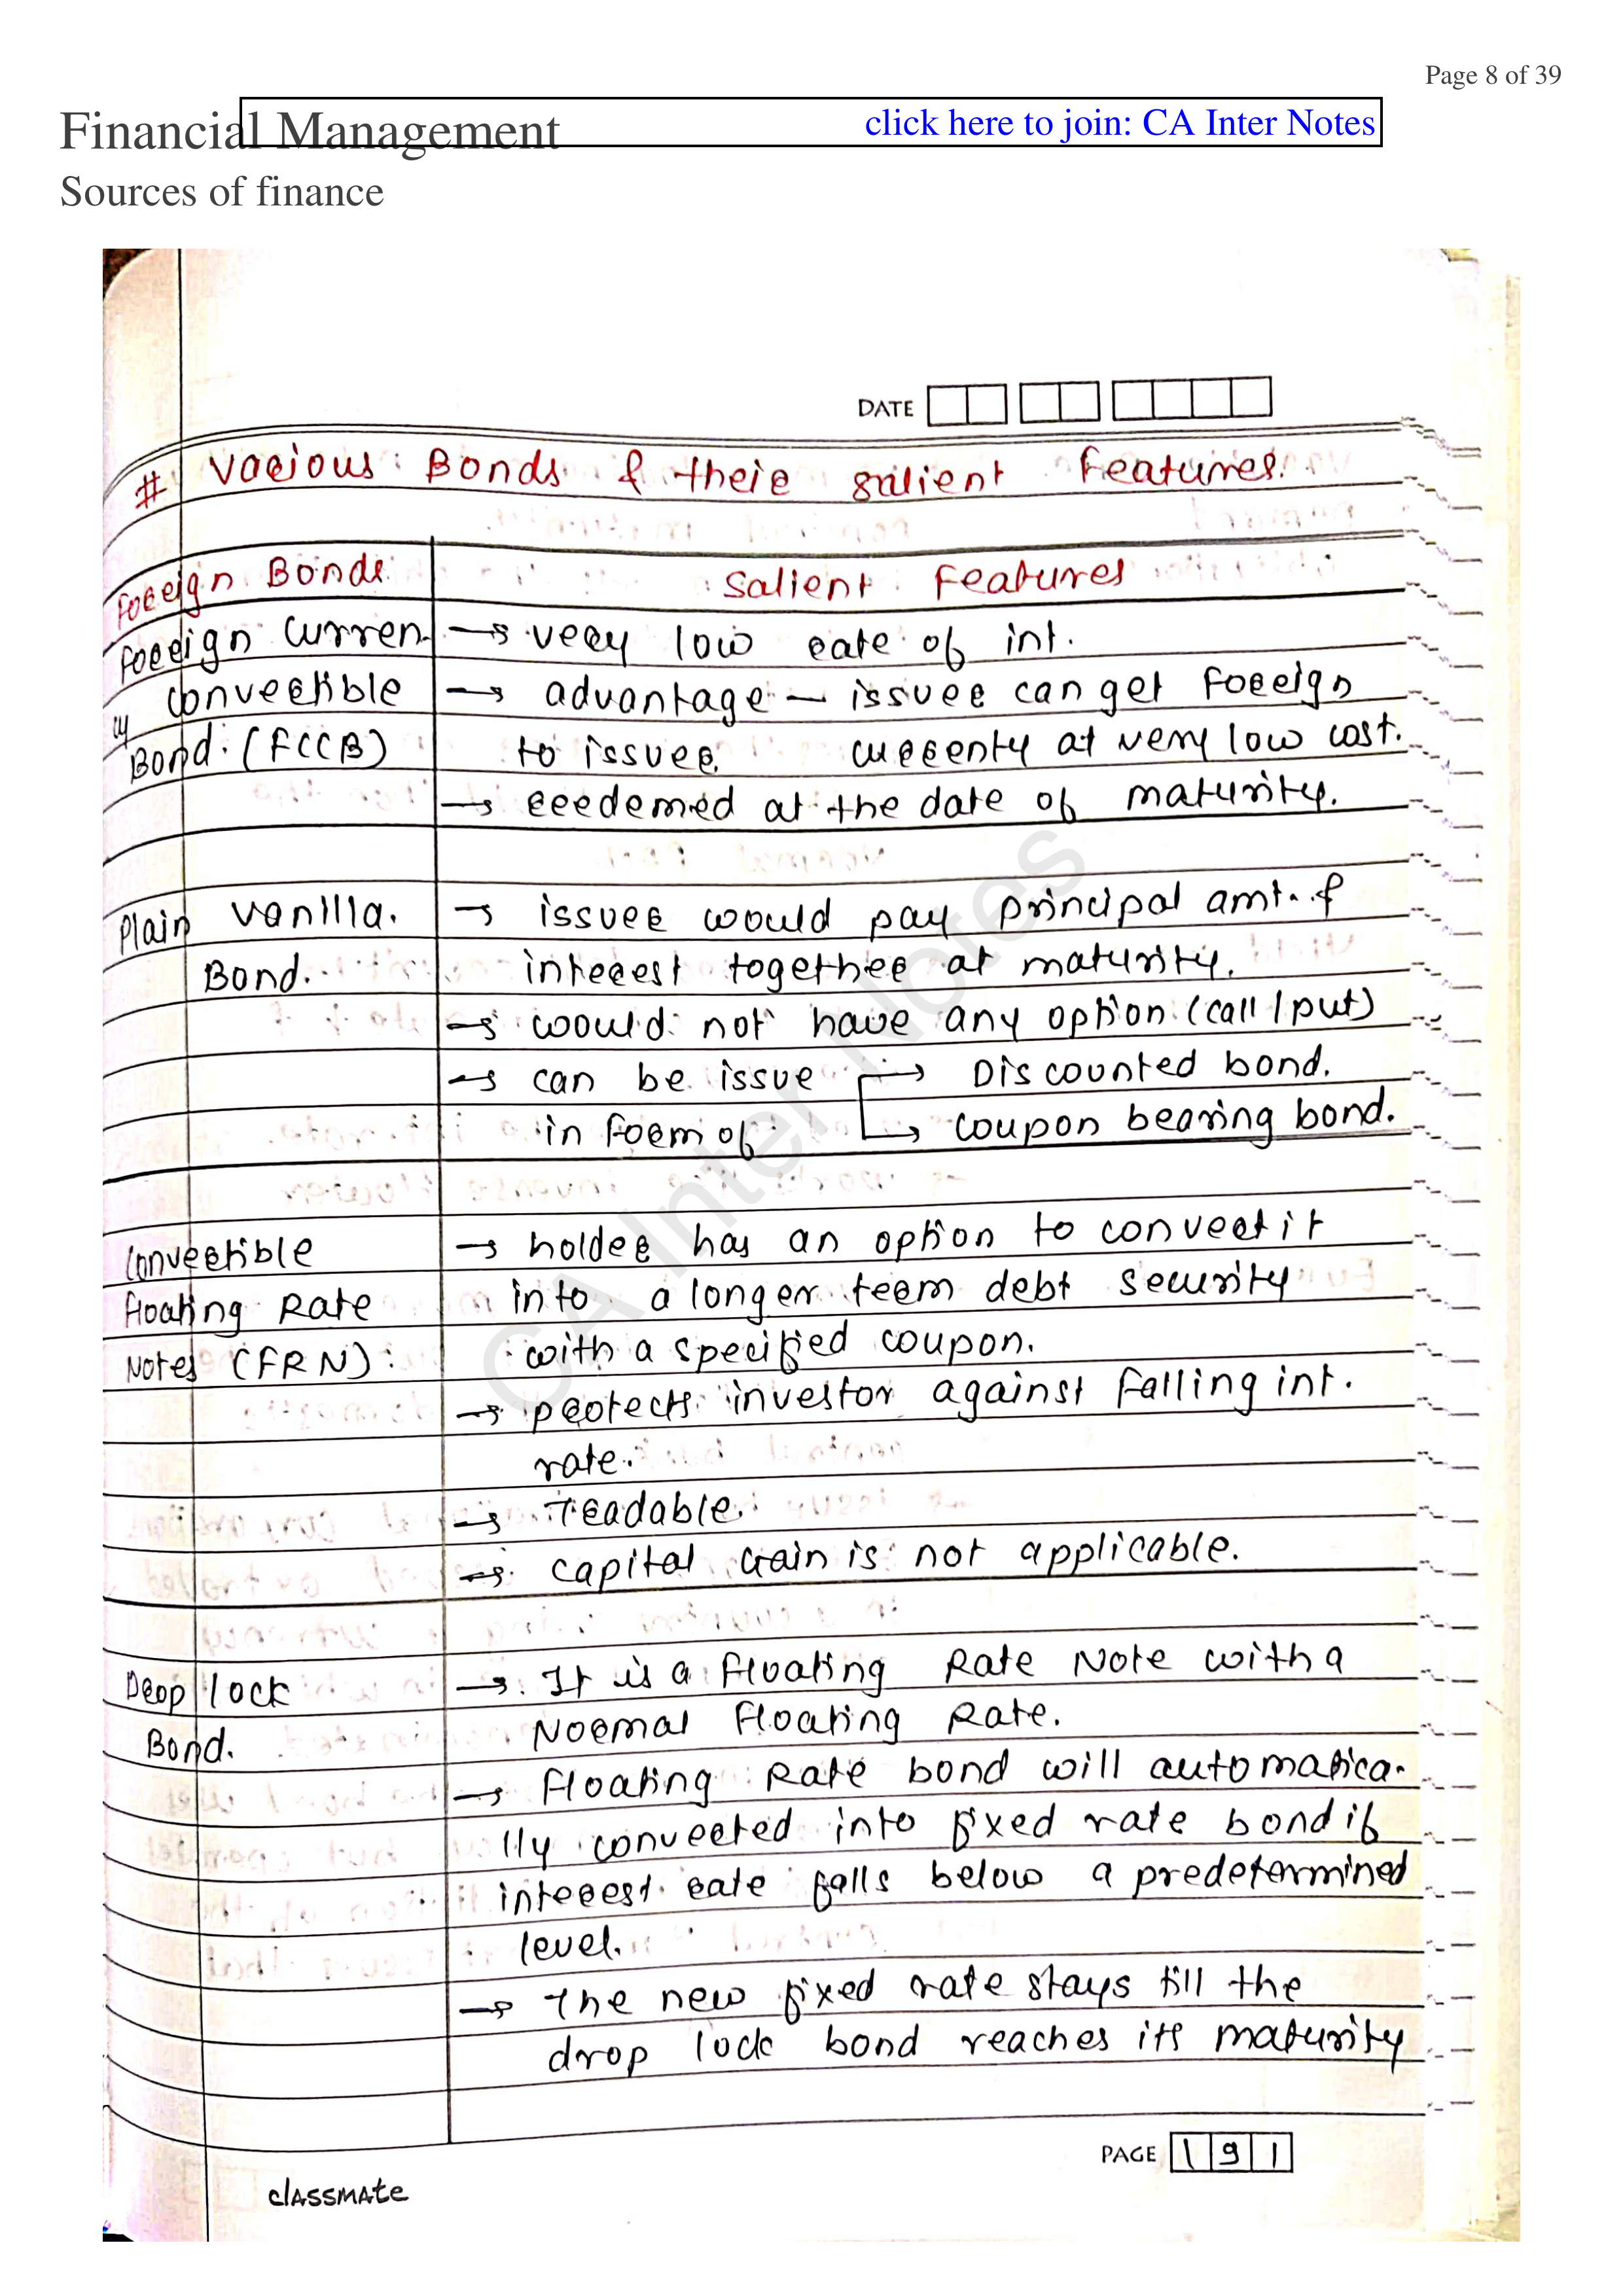 Page 8 of 39
Financial Management
click here to join: CA Inter Notes
Sources of finance
DATE
# Various Bonds & their salient Features.
Foreign Bonds
Salient Features
Foreign Curren-
cy Convertible
Bond. (FCCB)
→ very low rate of int.
→ advantage – issuer can get Foreign
to issuer. currenty at very low cost.
→ reedemed at the date of maturity.
Plain Vanilla.
Bond.
→ issuer would pay principal amt. &
interest together at maturity.
→ would not have any option (call / put)
→ can be issue → Discounted bond.
in form of → coupon bearing bond.
Convertible
Floating Rate
Notes (FRN):
→ holder has an option to convert it
into a longer term debt security
with a specified coupon.
→ protects investor against falling int.
rate.
→ Tradable.
→ capital Gain is not applicable.
Drop lock
Bond.
→ It is a Floating Rate Note with a
Normal Floating Rate.
→ Floating Rate bond will automatica-
lly converted into fixed rate bond if
interest rate falls below a predetermined
level.
→ The new fixed rate stays till the
drop lock bond reaches its maturity
PAGE 191
classmate
CA Inter Notes